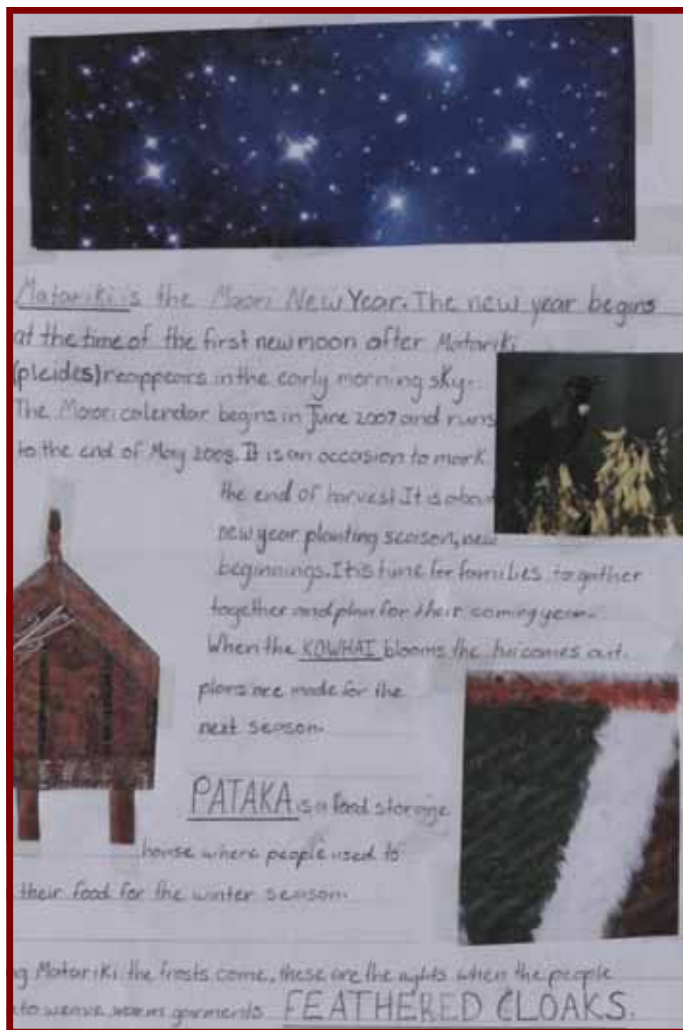 Matariki is the Maori New Year. The new year begins
at the time of the first new moon after Matariki
(pleides) reappears in the early morning sky.
The Maori calendar begins in June 2007 and runs
to the end of May 2008. It is an occasion to mark
the end of harvest. It is about
new year planting season, new
beginnings. It is time for families to gather
together and plan for their coming year.
When the KOWHAI blooms the tui comes out.
plans are made for the
next season.
PATAKA is a food storage
house where people used to
their food for the winter season.
ng Matariki the frosts come, these are the nights when the people
to weave warm garments FEATHERED CLOAKS.